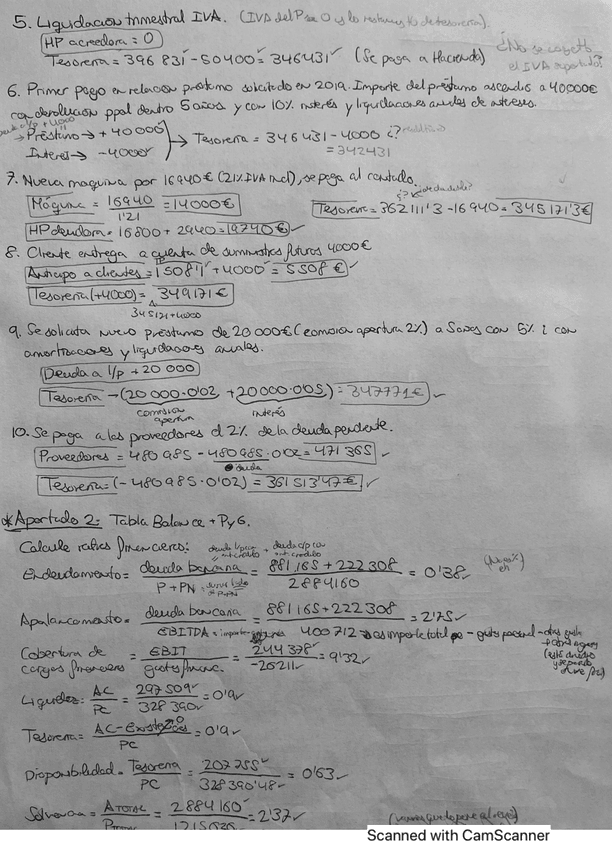 5. Liquidacion trimestral IVA. (IVA del P se 0 y lo restamos de tesoreria).
HP acreedora = 0
Tesoreria = 396 831 - 50400 = 346431 ✓ (Se paga a Hacienda)
¿No se cogió el IVA soportado?
6. Primer pago en relacion préstamo solicitado en 2019. Importe del préstamo asciende a 40000€
con devolucion ppal dentro 5 años y con 10% interés y liquidaciones anuales de intereses.
Préstamo → + 40 000
Interés → - 4000 → Tesoreria = 346 431 - 4000 ¿?
= 342431
7. Nueva maquina por 16940€ (21% IVA incl), se paga al contado.
Máquina = 16940 / 1'21 = 14000€
Tesoreria = 362111'3 - 16940 = 345171'3€
HP deudora = 16800 + 2940 = 19740€ ✓
8. Cliente entrega a cuenta de suministros futuros 4000€
Anticipo a clientes = 1508'1 + 4000 = 5508€ ✓
Tesoreria (+4000) = 349171€
345171+4000
9. Se solicita nuevo préstamo de 20 000€ (comision apertura 2%) a 5 años con 5% i con
amortizaciones y liquidaciones anuales.
Deuda a l/p + 20 000
Tesoreria → (20 000·0'02 + 20 000·0'05) = 347771€ ✓
comision apertura interés
10. Se paga a los proveedores el 2% de la deuda pendiente.
Proveedores = 480 985 - 480985·0'02 = 471 365 ✓
deuda
Tesoreria = (- 480 985·0'02) = 361 513'47€ ✓
* Apartado 2: Tabla Balance + PyG.
Calcule ratios financieros:
Endeudamiento = deuda bancaria / P + PN = 881 165 + 222 308 / 2884160 = 0'38 ✓
Apalancamiento = deuda bancaria / EBITDA = 881165 + 222308 / 400 712 = 2'75 ✓
Cobertura de cargas financieras = EBIT / gastos financ. = 244 378 / -26211 = 9'32 ✓
Liquidez = AC / PC = 297 509 / 328 390 = 0'9 ✓
Tesoreria = AC - Existencias / PC = 0'9 ✓
Disponibilidad = Tesoreria / PC = 207 255 / 328 390'48 = 0'63 ✓
Solvencia = A TOTAL / P = 2 884 160 = 2'37 ✓
Scanned with CamScanner